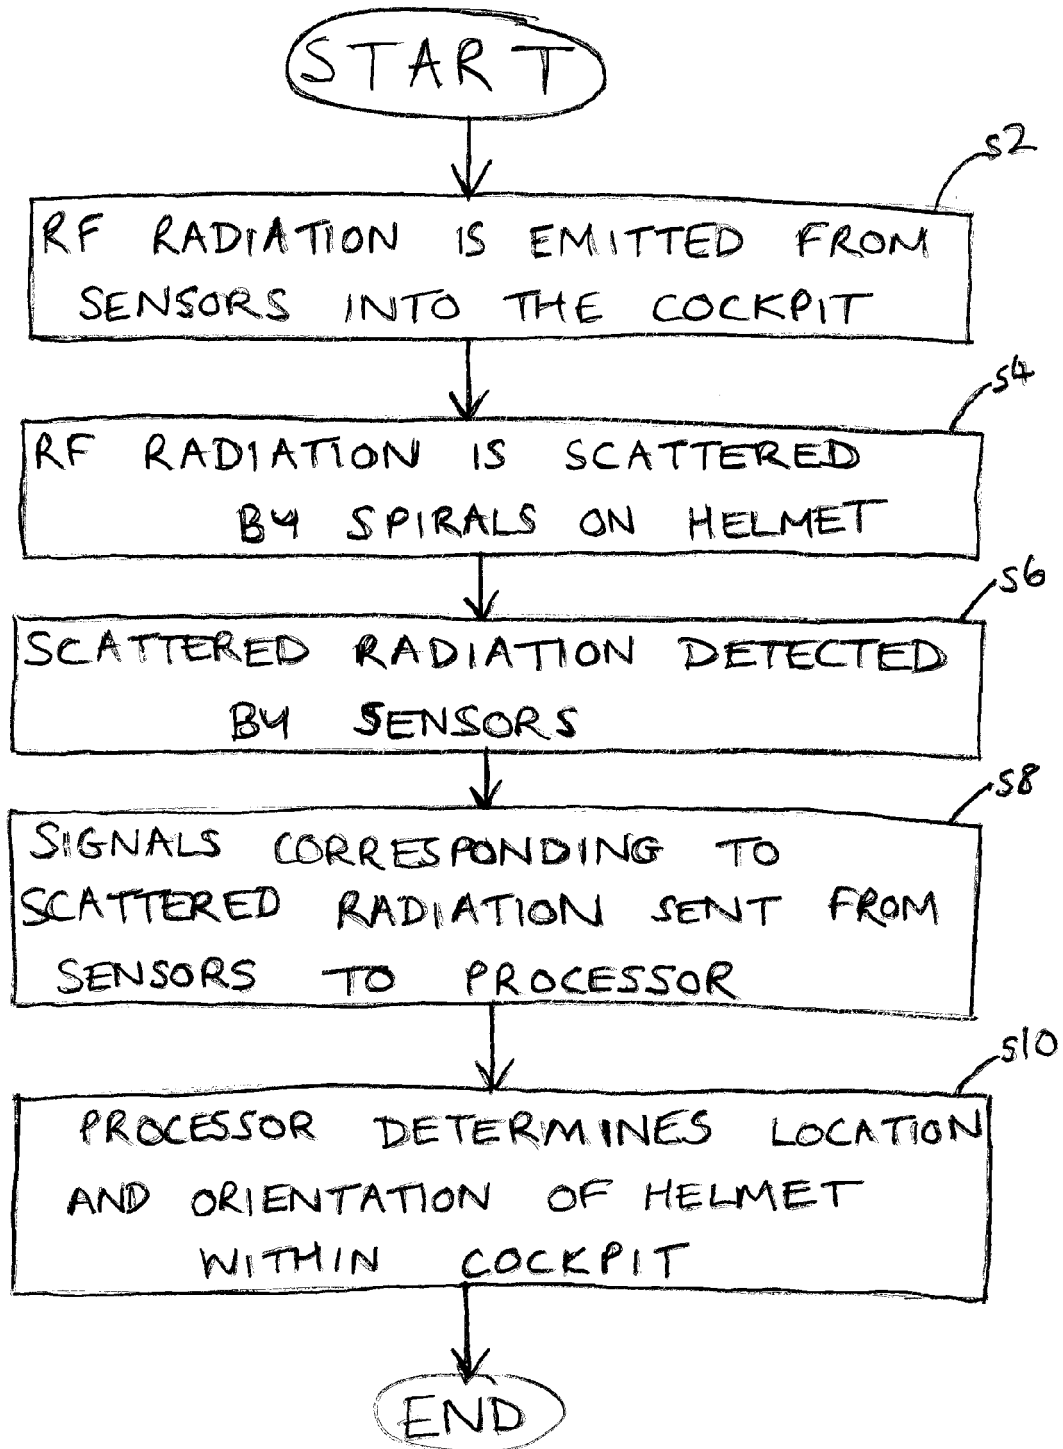 START
s2
RF RADIATION IS EMITTED FROM
SENSORS INTO THE COCKPIT
s4
RF RADIATION IS SCATTERED
BY SPIRALS ON HELMET
s6
SCATTERED RADIATION DETECTED
BY SENSORS
s8
SIGNALS CORRESPONDING TO
SCATTERED RADIATION SENT FROM
SENSORS TO PROCESSOR
s10
PROCESSOR DETERMINES LOCATION
AND ORIENTATION OF HELMET
WITHIN COCKPIT
END